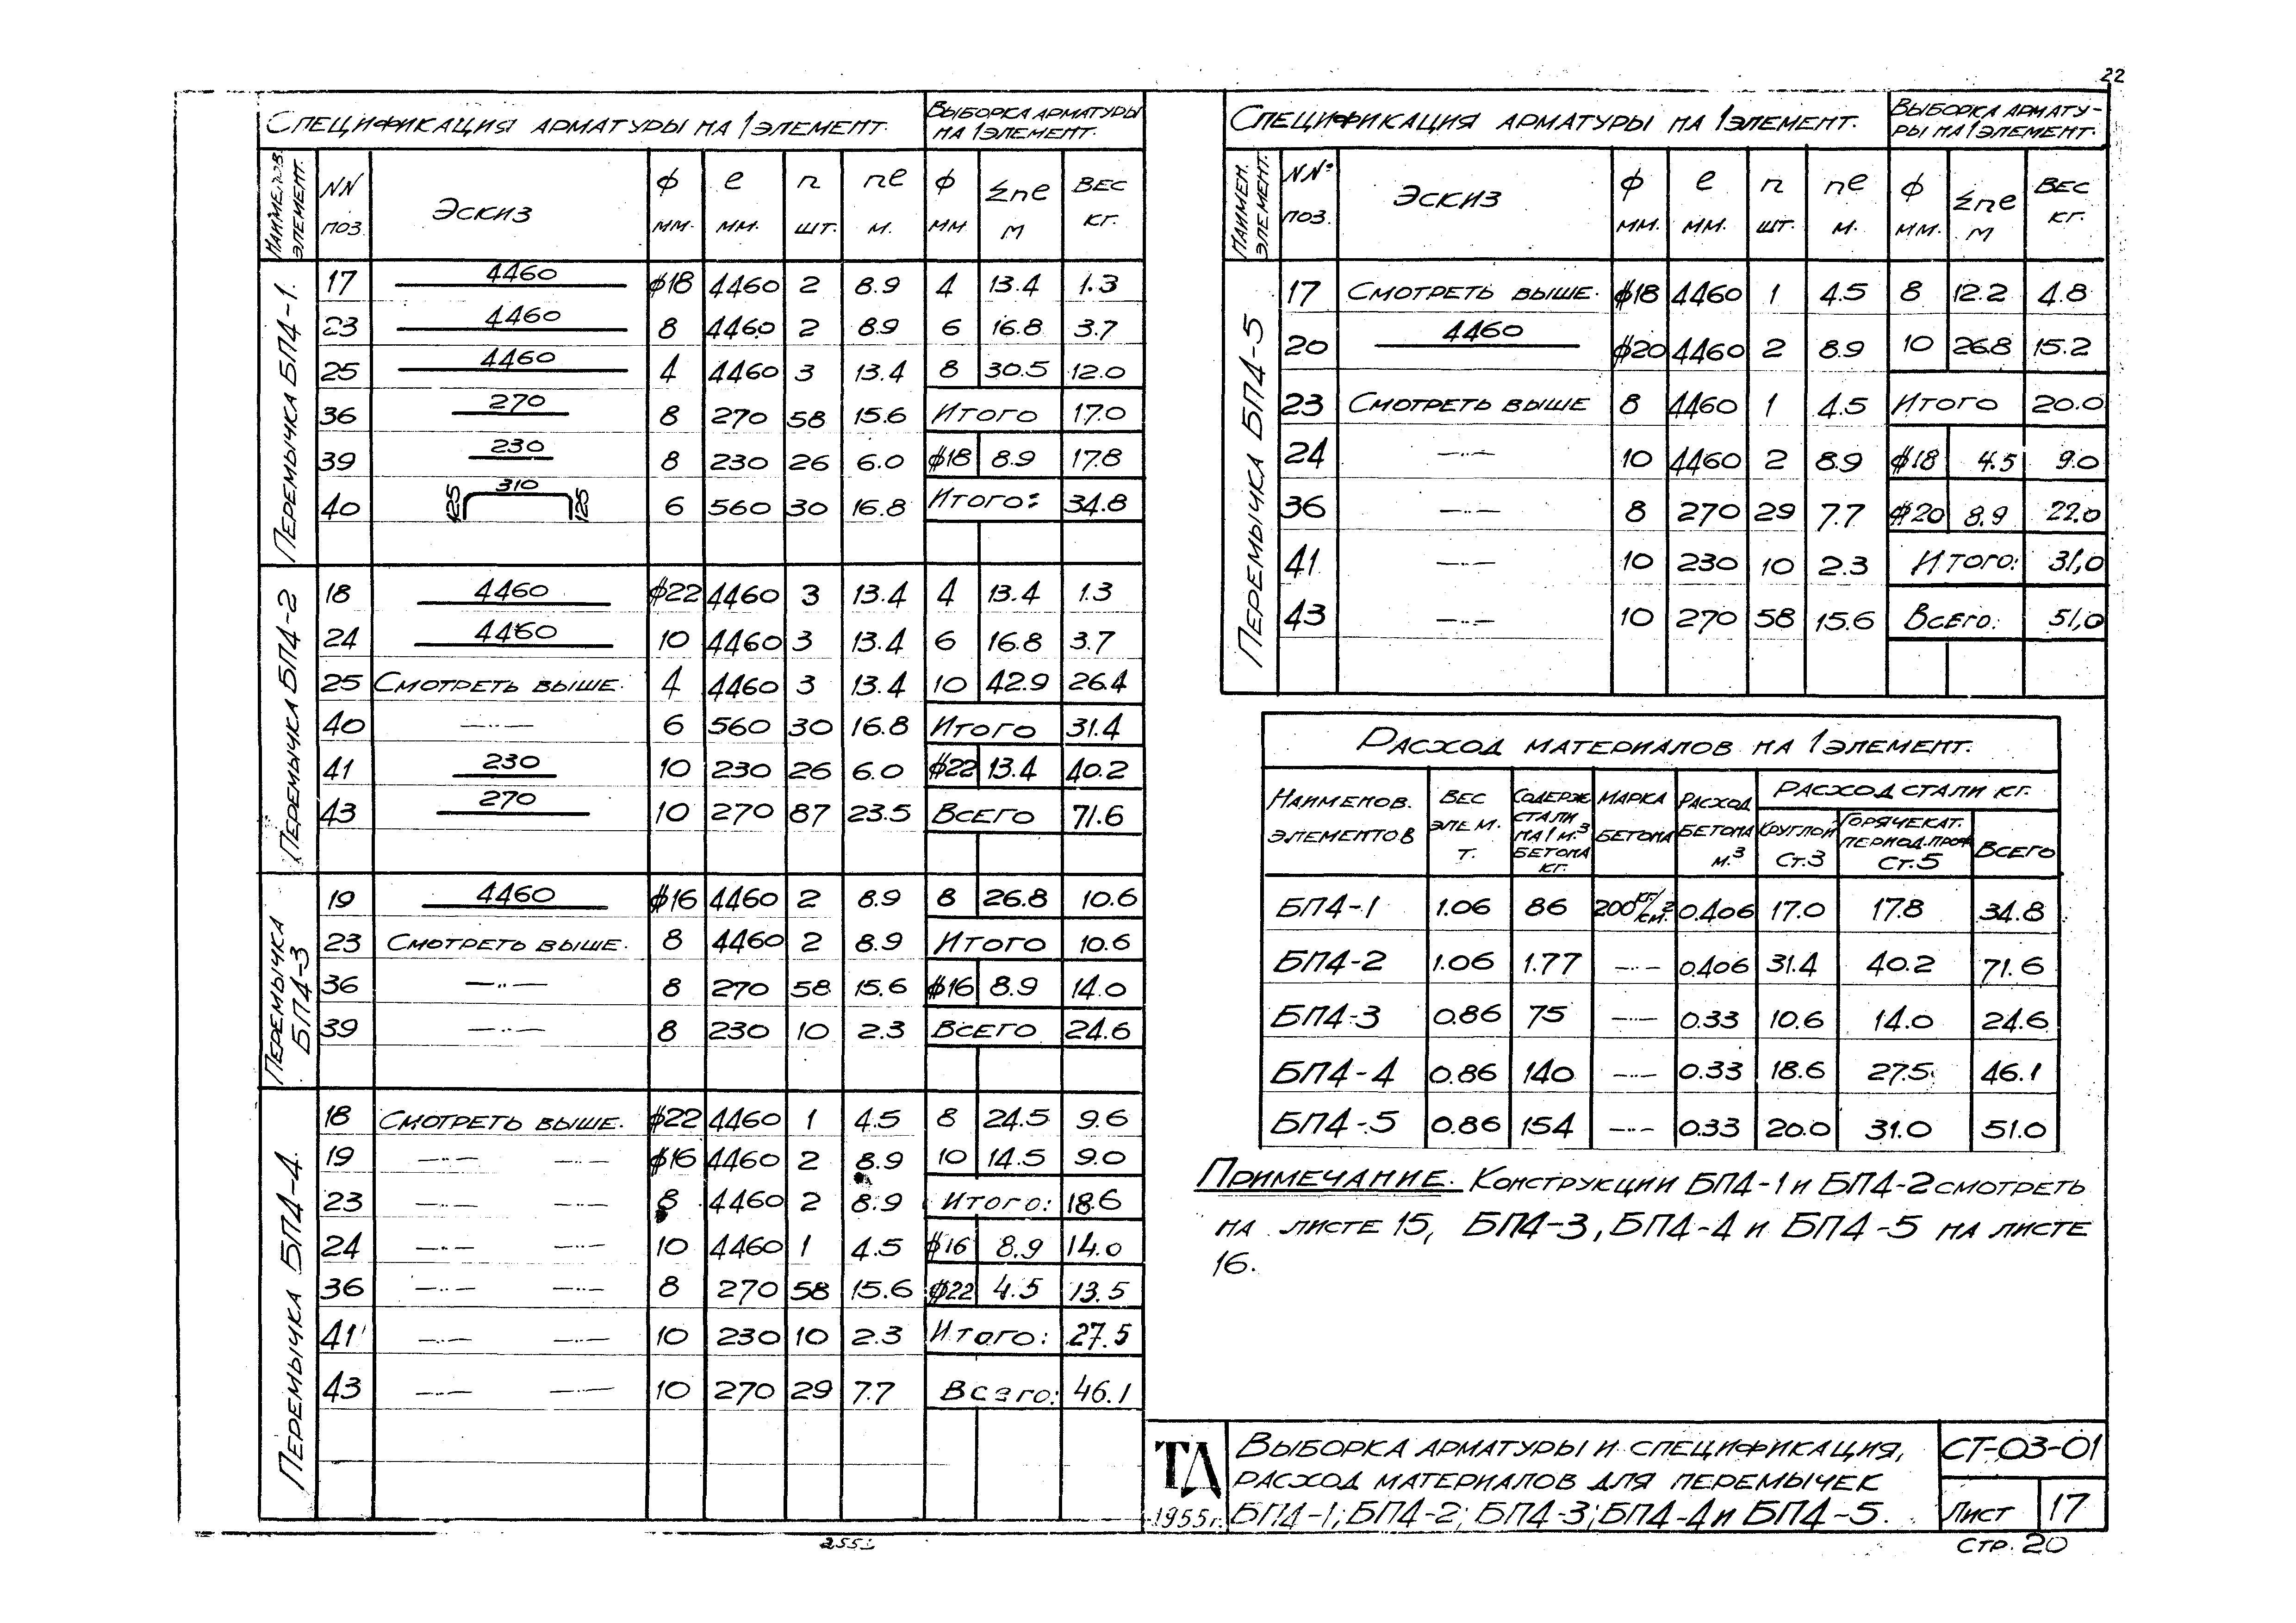 22
Спецификация арматуры на 1 элемент. Выборка арматуры на 1 элемент.
Наименов. элемент. NN поз. Эскиз ф мм. е мм. п шт. пе м. ф мм Σпе м Вес кг.
Перемычка БП4-1.
17 4460 ф18 4460 2 8.9 4 13.4 1.3
23 4460 8 4460 2 8.9 6 16.8 3.7
25 4460 4 4460 3 13.4 8 30.5 12.0
36 270 8 270 58 15.6 Итого 17.0
39 230 8 230 26 6.0 ф18 8.9 17.8
40 125 310 125 6 560 30 16.8 Итого: 34.8
Перемычка БП4-2
18 4460 ф22 4460 3 13.4 4 13.4 1.3
24 4460 10 4460 3 13.4 6 16.8 3.7
25 Смотреть выше. 4 4460 3 13.4 10 42.9 26.4
40 —··— 6 560 30 16.8 Итого 31.4
41 230 10 230 26 6.0 ф22 13.4 40.2
43 270 10 270 87 23.5 Всего 71.6
Перемычка БП4-3
19 4460 ф16 4460 2 8.9 8 26.8 10.6
23 Смотреть выше. 8 4460 2 8.9 Итого 10.6
36 —··— 8 270 58 15.6 ф16 8.9 14.0
39 —··— 8 230 10 2.3 Всего 24.6
Перемычка БП4-4.
18 Смотреть выше. ф22 4460 1 4.5 8 24.5 9.6
19 —··— —··— ф16 4460 2 8.9 10 14.5 9.0
23 —··— —··— 8 4460 2 8.9 Итого: 18.6
24 —··— —··— 10 4460 1 4.5 ф16 8.9 14.0
36 —··— —··— 8 270 58 15.6 ф22 4.5 13.5
41 —··— —··— 10 230 10 2.3 Итого: 27.5
43 —··— —··— 10 270 29 7.7 Всего: 46.1
Спецификация арматуры на 1 элемент. Выборка арматуры на 1 элемент.
Наимен. элемент. NNº поз. Эскиз ф мм. е мм. п шт. пе м. ф мм. Σпе м Вес кг.
Перемычка БП4-5
17 Смотреть выше. ф18 4460 1 4.5 8 12.2 4.8
20 4460 ф20 4460 2 8.9 10 26.8 15.2
23 Смотреть выше 8 4460 1 4.5 Итого 20.0
24 —··— 10 4460 2 8.9 ф18 4.5 9.0
36 —··— 8 270 29 7.7 ф20 8.9 22.0
41 —··— 10 230 10 2.3 Итого: 31,0
43 —··— 10 270 58 15.6 Всего: 51,0
Расход материалов на 1 элемент.
Наименов. элементов Вес элем. т. Содерж стали на 1 м.³ бетона кг. Марка бетона Расход бетона м.³ Расход стали кг.
Круглой Ст.3 Горячекат. период. проф Ст.5 Всего
БП4-1 1.06 86 200 кг/см.² 0.406 17.0 17.8 34.8
БП4-2 1.06 1.77 —··— 0.406 31.4 40.2 71.6
БП4-3 0.86 75 —··— 0.33 10.6 14.0 24.6
БП4-4 0.86 140 —··— 0.33 18.6 27.5 46.1
БП4-5 0.86 154 —··— 0.33 20.0 31.0 51.0
Примечание. Конструкции БП4-1 и БП4-2 смотреть
на листе 15, БП4-3, БП4-4 и БП4-5 на листе
16.
ТД
1955г.
Выборка арматуры и спецификация,
расход материалов для перемычек
БП4-1; БП4-2; БП4-3; БП4-4 и БП4-5.
СТ-03-01
Лист 17
стр. 20